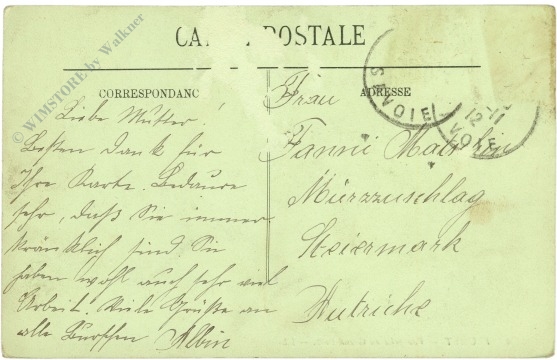 CARTE POSTALE
CORRESPONDANC
ADRESSE
© WIMSTORE by Walkner
SAVOIE
12-11
VOIE
Liebe Mutter!
Besten Dank für
Ihre Karte. Bedaure
sehr, daß Sie immer
kränklich sind. Sie
haben wohl auch sehr viel
Arbeit. Viele Grüße an
alle Burschen Albin
Frau
Fanni
Mürzzuschlag
Steiermark
Autriche